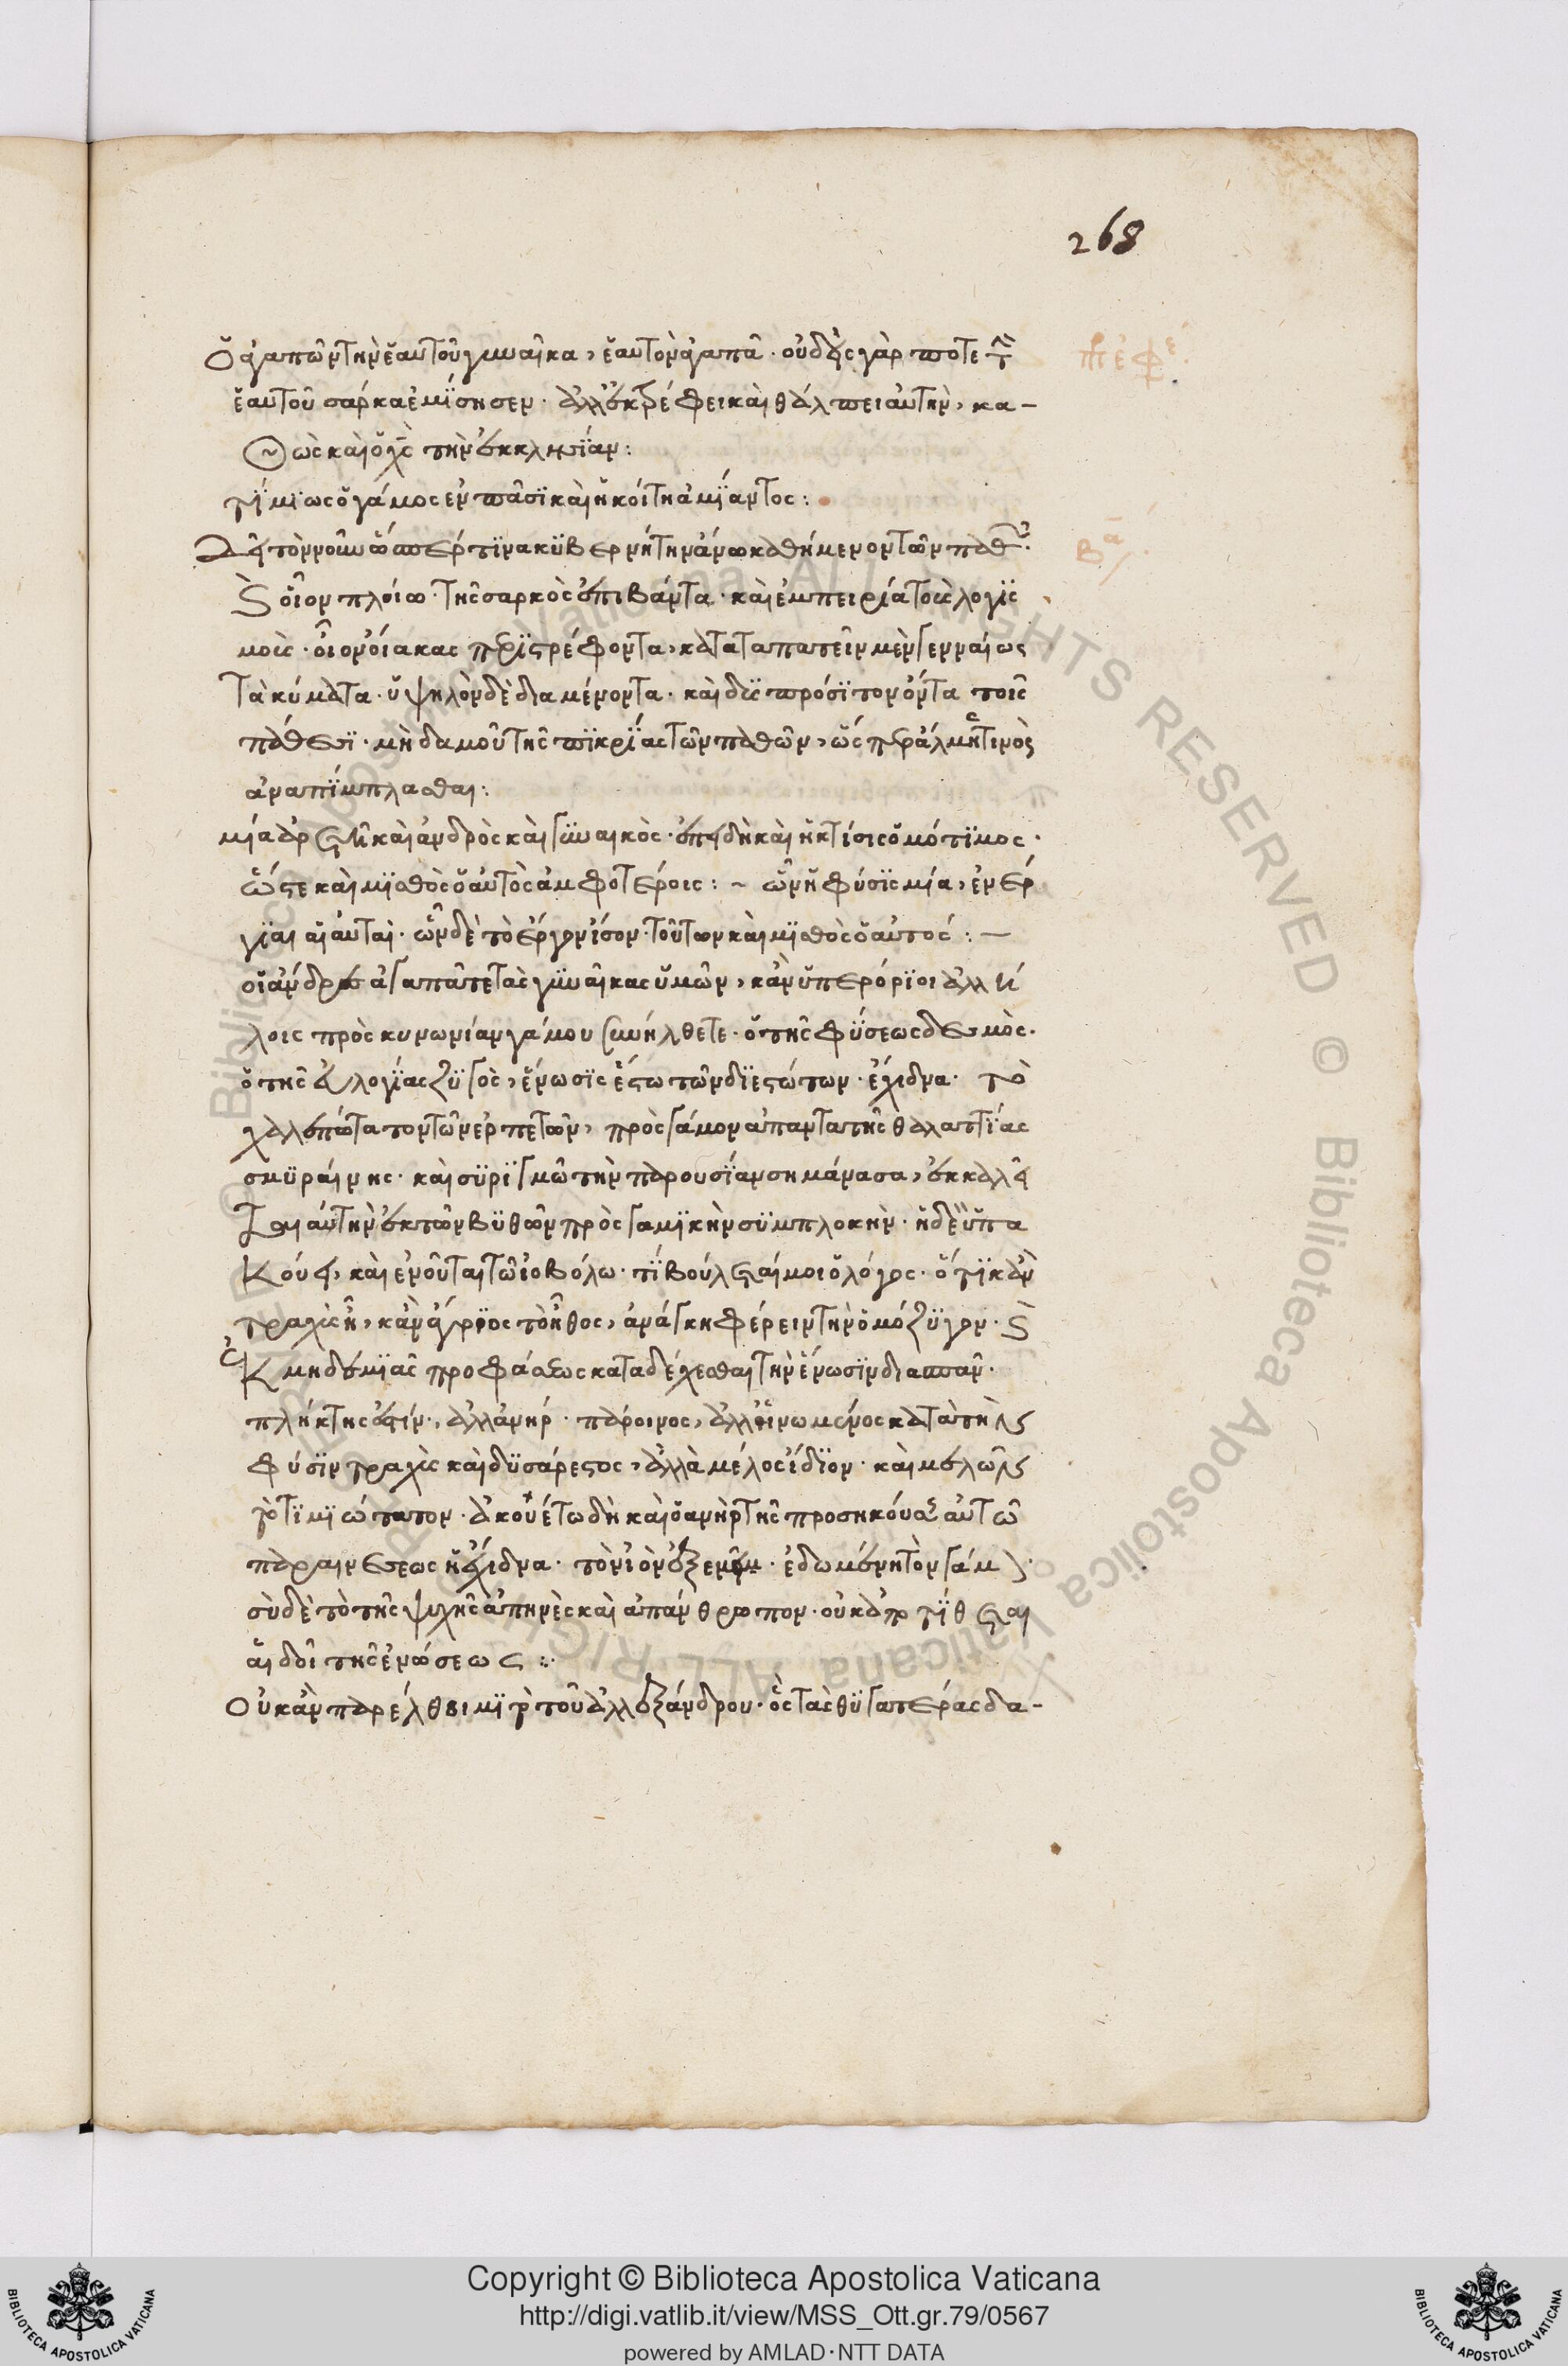 268
Ὁ ἀγαπῶν τὴν ἑαυτοῦ γυναῖκα, ἑαυτὸν ἀγαπᾶ· οὐδεὶς γάρ ποτε τ
ἑαυτοῦ σάρκα ἐμίσησεν· ἀλλ' ἐκτρέφει καὶ θάλπει αὐτὴν, κα-
θὼς καὶ ὁ χς τὴν ἐκκλησίαν:
τίμιως ὁ γάμος ἐν πᾶσι καὶ ἡ κοίτη ἀμίαντος:
Δεῖ τὸν νοῦν ὥσπερ τινα κυβερνήτην ἄνω καθήμενον τῶν παθ
οἷον πλοίω· τῆς σαρκὸς ἐπιβάντα· καὶ ἐμπειρία τοὺς λογισ
μοὺς· οἷον οἴακας περιστρέφοντα, καταπατεῖν μὲν γενναίως
τὰ κύματα· ὑψηλὸν δὲ διαμένοντα· καὶ δυσπρόσιτον ὄντα τοῖς
πάθεσι· μηδαμοῦ τῆς πικρίας τῶν παθῶν, ὥσπερ ἅλμης τινὸς
ἀναπίμπλασθαι:
μία ἀρετὴ καὶ ἀνδρὸς καὶ γυναικὸς· ἐπειδὴ καὶ ἡ κτίσις ὁμότιμος·
ὥστε καὶ μισθὸς ὁ αὐτὸς ἀμφοτέροις: ~ ὧν ἡ φύσις μία, ἐνέρ
γιαι αἱ αὐταὶ· ὧν δὲ τὸ ἔργον ἴσον· τούτων καὶ μισθὸς ὁ αὐτός: —
οἱ ἄνδρες ἀγαπᾶτε τὰς γυναῖκας ὑμῶν, κἂν ὑπερόριοι ἀλλή
λοις πρὸς κυνωνίαν γάμου συνήλθετε· ὁ τῆς φύσεως δεσμὸς·
ὁ τῆς εὐλογίας ζυγὸς, ἕνωσις ἔστω τῶν διεστώτων· ἔχιδνα· τὸ
χαλεπώτατον τῶν ἑρπετῶν, πρὸς γάμον ἀπαντᾶ τῆς θαλαττίας
σμυραίνης· καὶ συριγμῶ τὴν παρουσίαν σημάνασα, ἐκκαλεῖ
ται αὐτὴν ἐκ τῶν βυθῶν πρὸς γαμικὴν συμπλοκὴν· ἡ δὲ ὑπα
κούει, καὶ ἑνοῦται τῶ ἰοβόλω· τί βούλεταί μοι ὁ λόγος· ὅτι κἂν
τραχὺς ἦ, κἂν ἄγριος τὸ ἦθος, ἀνάγκη φέρειν τὴν ὁμόζυγον·
ἐκ μηδεμιᾶς προφάσεως καταδέχεσθαι τὴν ἕνωσιν διασπᾶν·
πλήκτης ἐστίν, ἀλλ' ἀνήρ· πάροινος, ἀλλ' ἡνωμένος κατὰ τὴν
φύσιν τραχὺς καὶ δυσάρεστος, ἀλλὰ μέλος ἴδιον· καὶ μελῶν
τὸ τιμιώτατον· ἀκουέτω δὴ καὶ ὁ ἀνὴρ τῆς προσηκούσης αὐτῶ
παραινέσεως ἡ ἔχιδνα· τὸν ἰὸν ἐξεμεῖ· ἐδωμένη τὸν γάμ
σὺ δὲ τὸ τῆς ψυχῆς ἀπηνὲς καὶ ἀπάνθρωπον· οὐκ ἀποτίθεσαι
αἰδοῖ τῆς ἑνώσεως:
Οὐκ ἂν παρέλθοι μι τὸ τοῦ ἀλεξάνδρου· ὃς τὰς θυγατέρας δα-
Copyright © Biblioteca Apostolica Vaticana
http://digi.vatlib.it/view/MSS_Ott.gr.79/0567
powered by AMLAD·NTT DATA